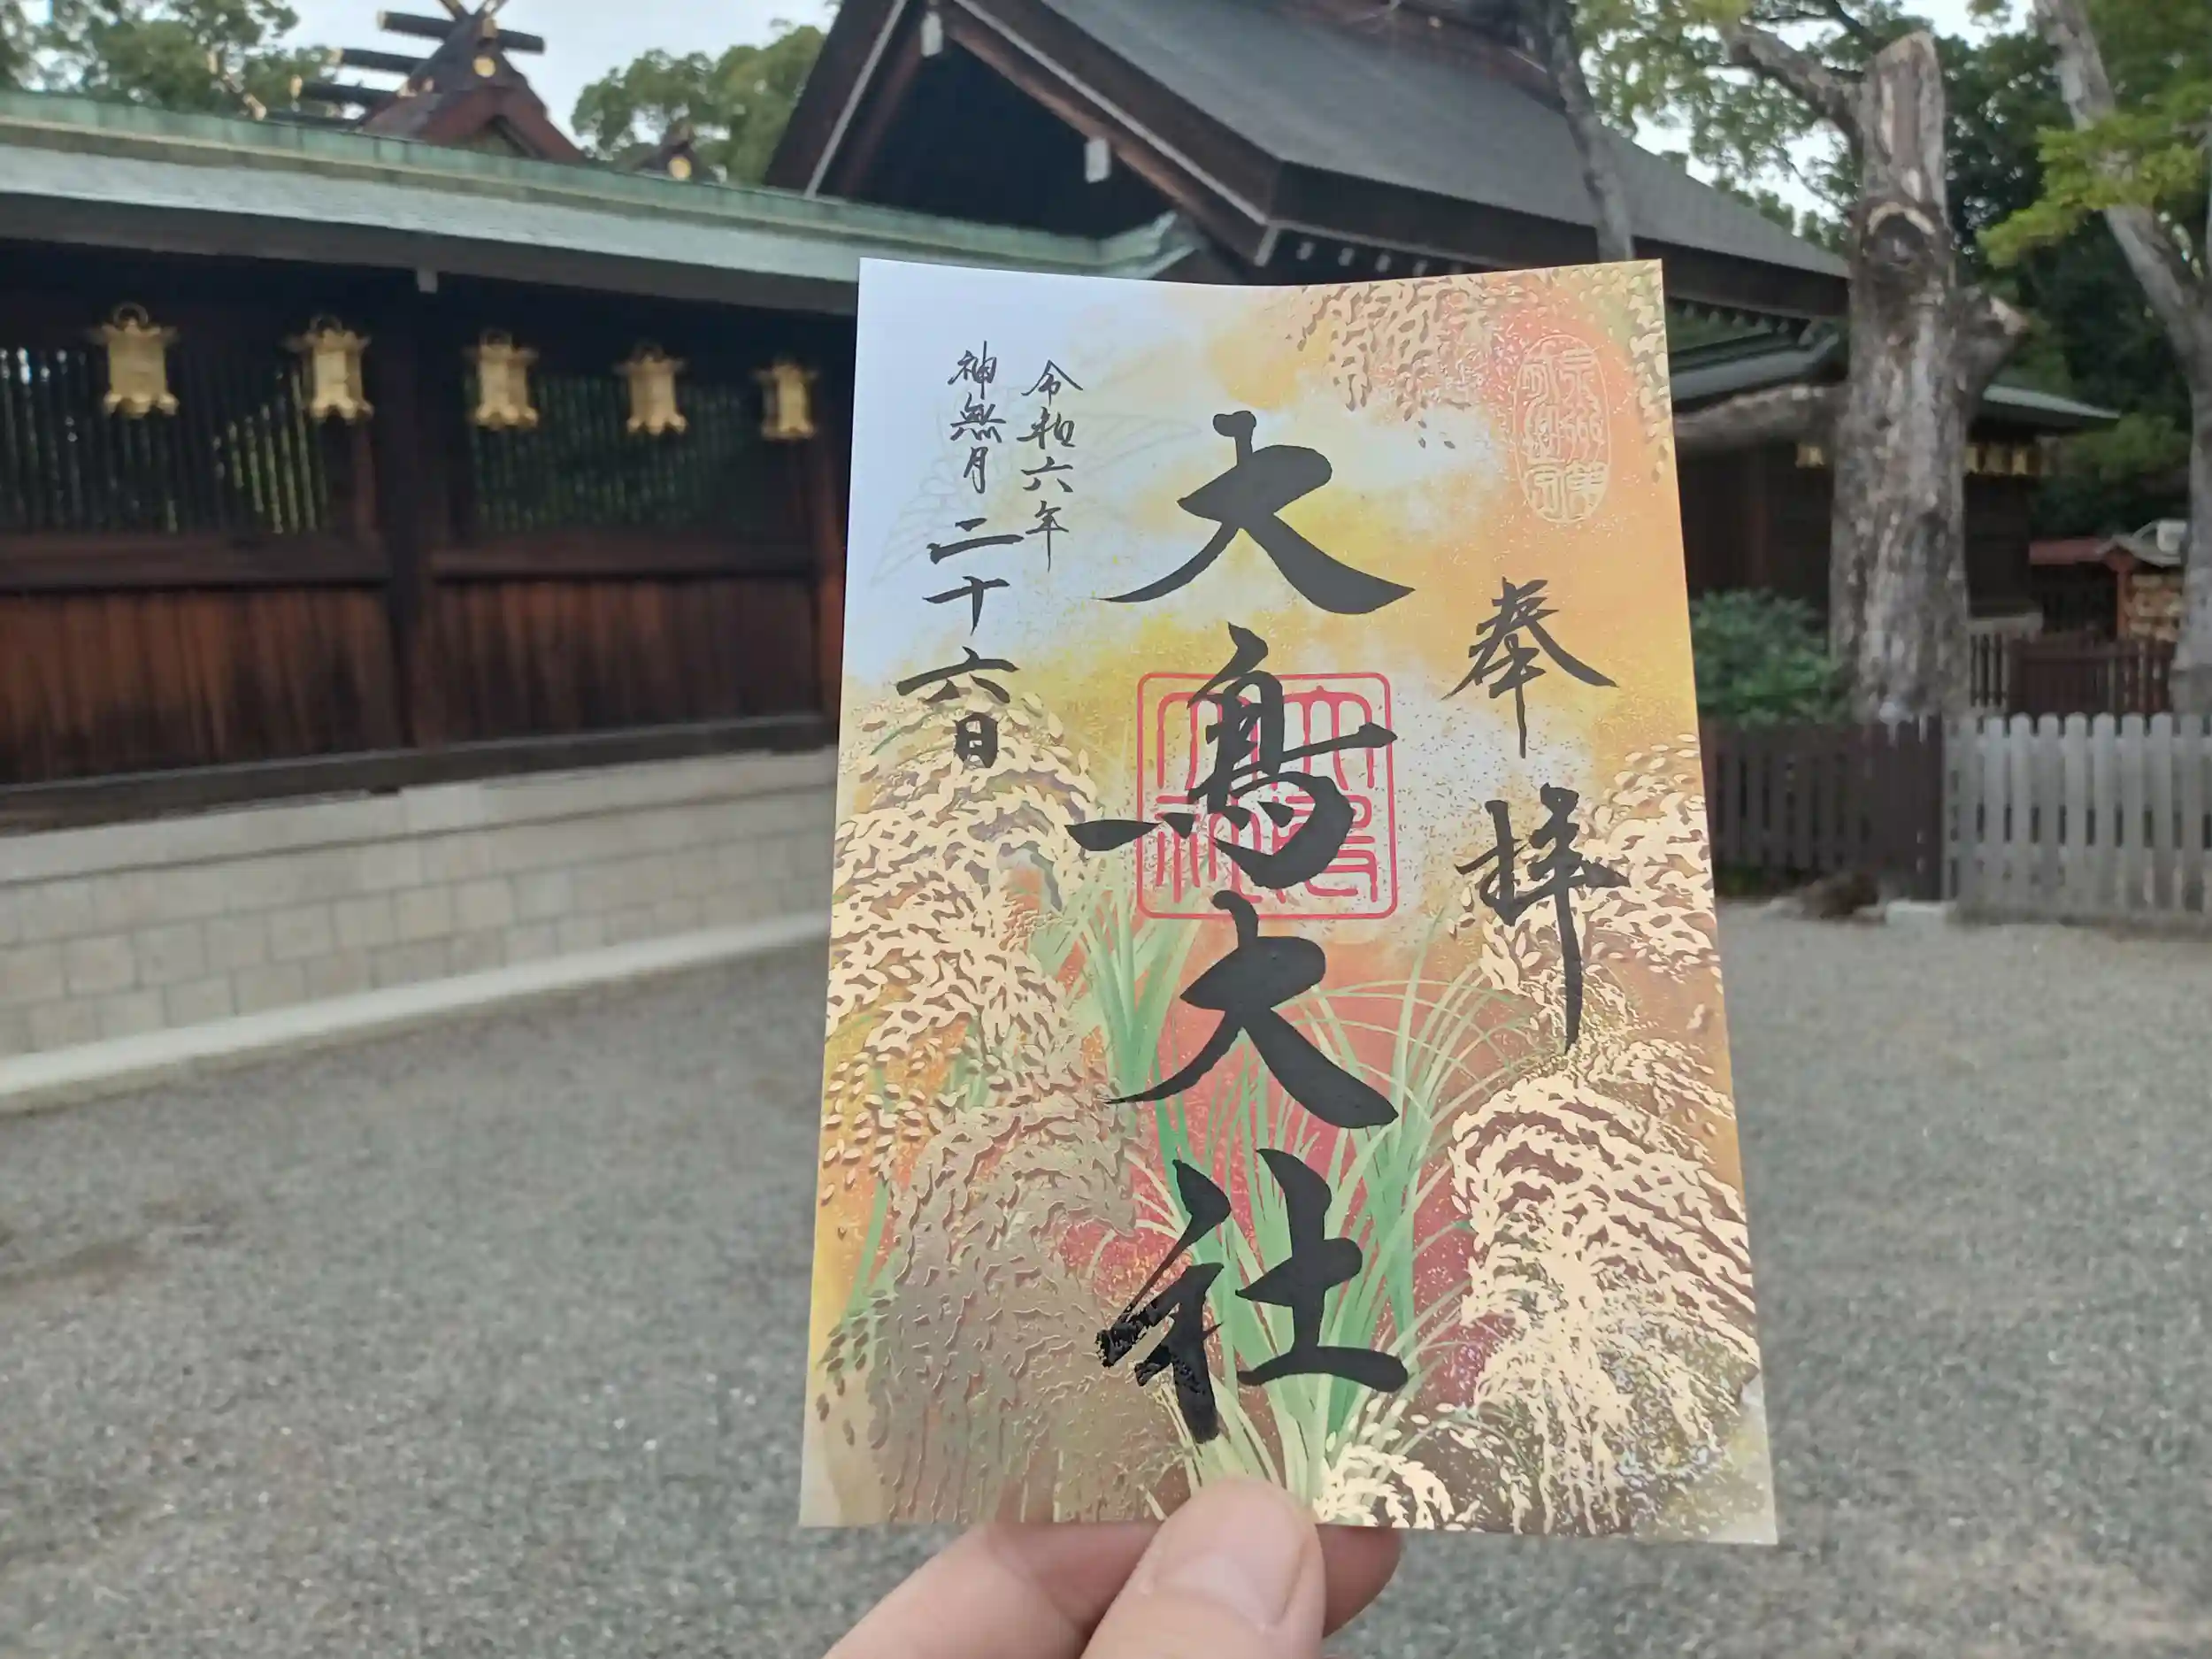 奉拝
大鳥大社
大鳥大社
令和六年
神無月二十六日